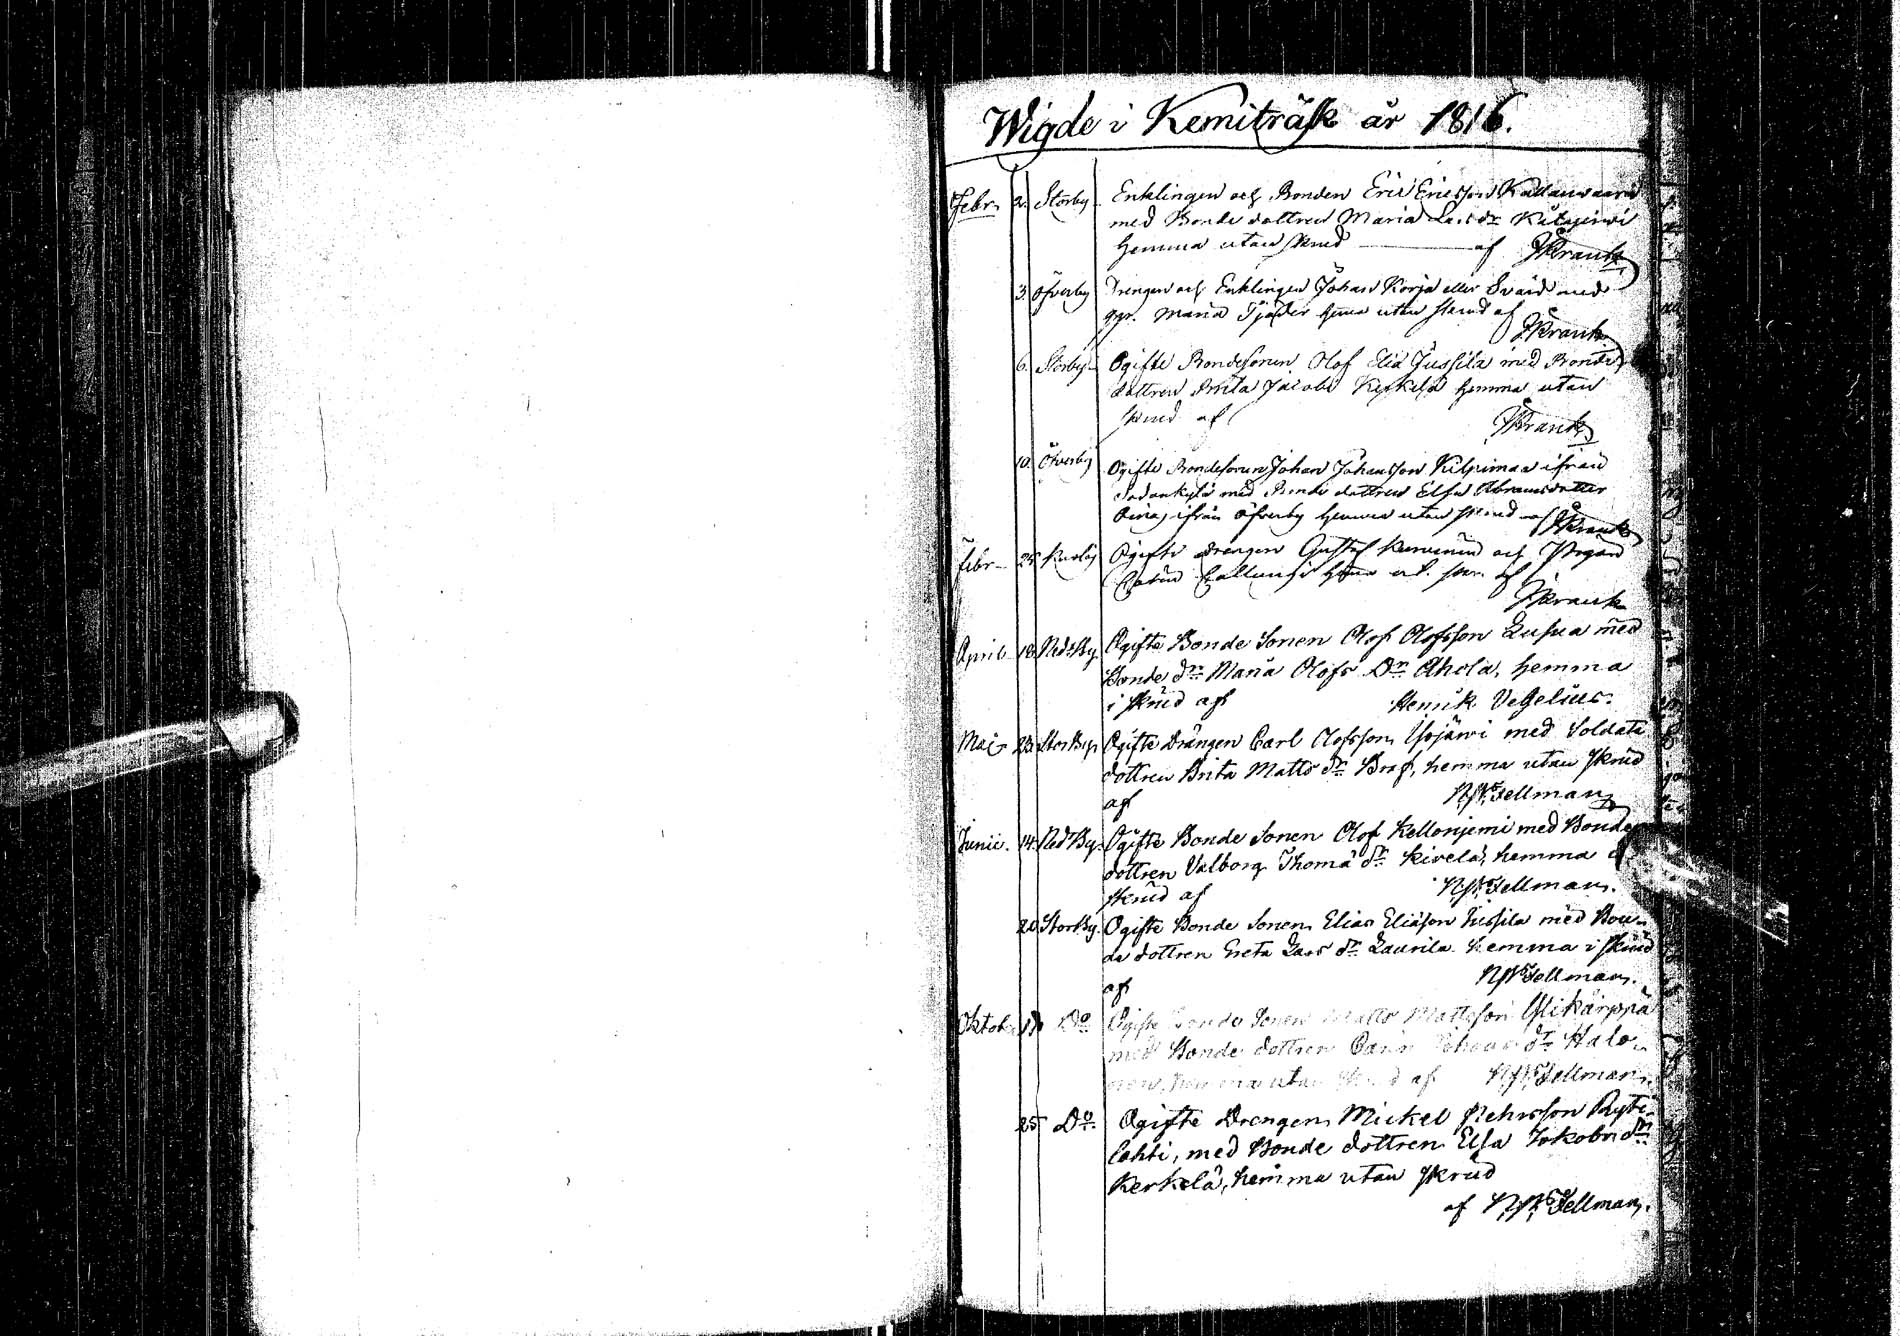 Wigde i Kemiträsk år 1816.
Febr. 2. Storby Enklingen och Bonden Eric Ericsson Kallanvaara
med Bonde dottren Maria Lars dr
hemma utan skrud af JKrank
3. Öfverby Drengen och Enklingen Johan Korja eller Svärd med
Maria Tjäder hema utan skrud af
JKrank
6. Storby Ogifte Bondesonen Olof Elia Jussila med Bonde
dottren Brita Jacobs Kerkelä hemma utan
skrud af
JKrank
10. Öfverby Ogifte Bondesonen Johan Johansson Kilpimaa ifrån
Sodankylä med Bonde dottren Elsa Abramsdotter
ifrån Öfverby hemma utan skrud af JKrank
Febr 25 Ogifte drengen Gustaf och Pigan
af
JKrank
April 18 Ned:By. Ogifte Bonde Sonen Olof Olofsson Luspa med
Bonde dn Maria Olofs Dn Ahola, hemma
i skrud af Henrik Vegelius.
Maj 23. StorBy. Ogifte Drängen Carl Olofsson Isojärvi med Soldats
dottren Brita Matts dr Braf, hemma utan skrud
af Fellman
Junii. 14. Ned:By. Ogifte Bonde Sonen Olof Kellonjemi med Bonde
dottren Valborg Thoma dr Kivelä, hemma i
skrud af Fellman.
20 StorBy. Ogifte Bonde Sonen Elias Eliäson Jussila med Bon-
de dottren Greta Lars dr Laurila hemma i skrud
af Fellman.
Oktob. 17 Do Ogifte Bonde Sonen Matts Mattsson Ylikärppä
med Bonde dottren Carin Johans dr Halo-
nen, hemma utan skrud af Fellman.
25 Do. Ogifte Drengen Mickel Pehrsson Pyhä-
lahti, med Bonde dottren Elsa Jakobs dr
Kerkelä, hemma utan skrud
af Fellman.